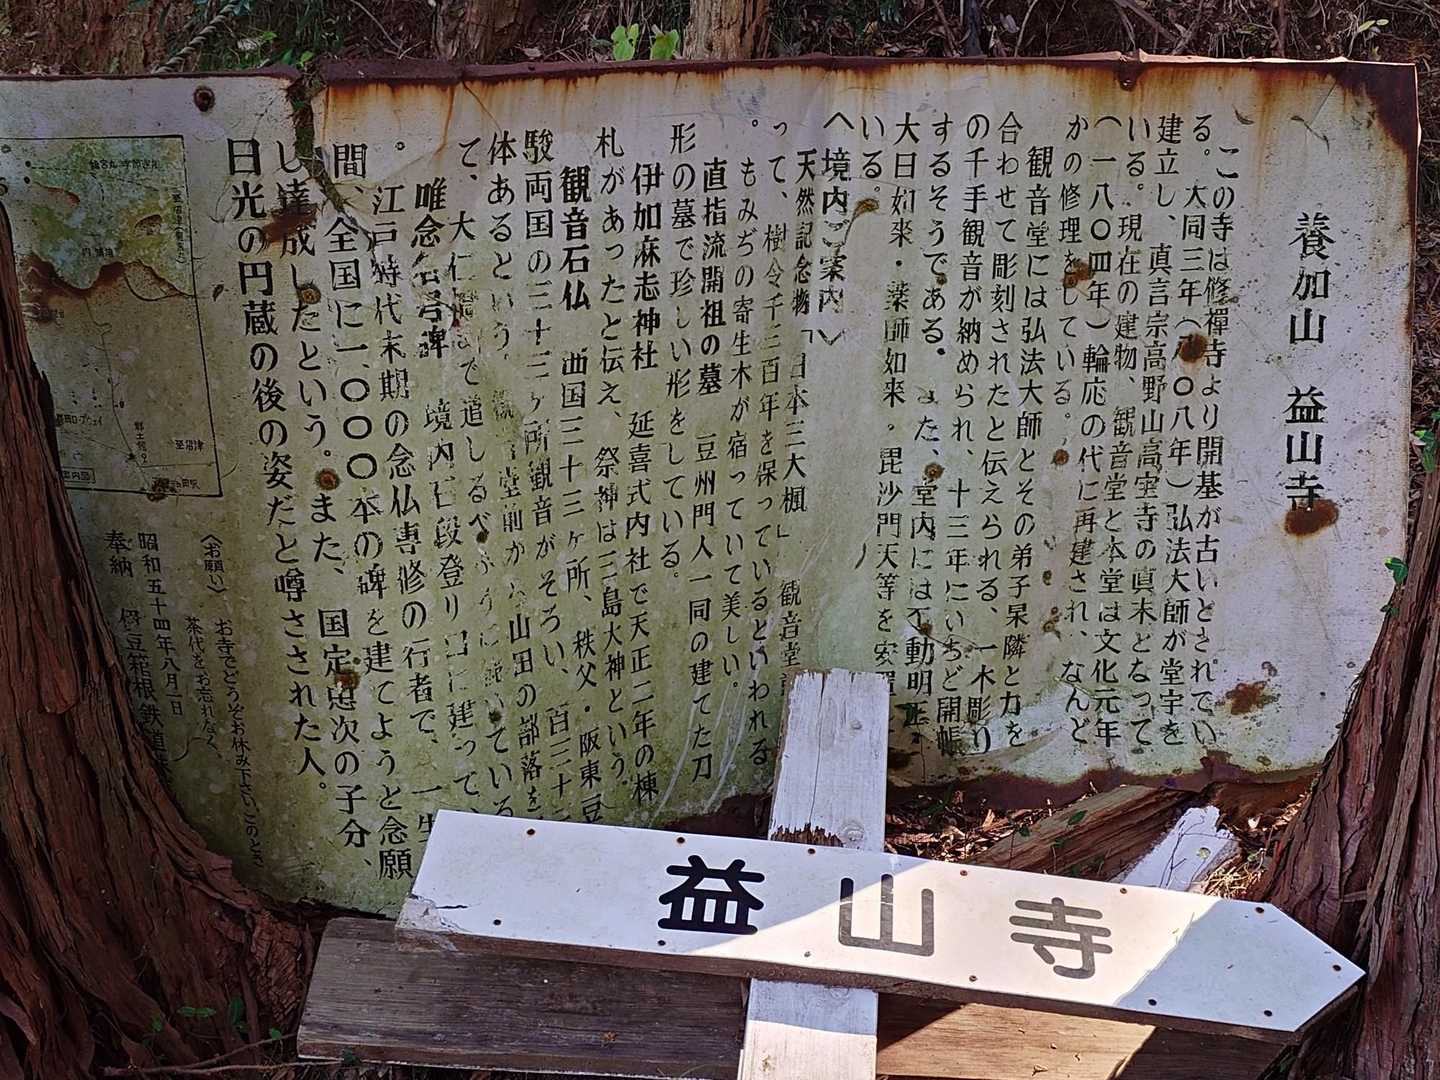 養加山 益山寺
この寺は修禅寺より開基が古いとされてい
る。大同三年(八〇八年)弘法大師が堂宇を
建立し、真言宗高野山高室寺の真末となって
いる。現在の建物、観音堂と本堂は文化元年
(一八〇四年)輪応の代に再建され、なんど
かの修理をしている。
観音堂には弘法大師とその弟子杲隣と力を
合わせて彫刻されたと伝えられる、一木彫り
の千手観音が納められ、十三年にいちど開帳
するそうである。また、堂内には不動明王・
大日如来・薬師如来・毘沙門天等を安置
いる。
〈境内ご案内〉
天然記念物「日本三大楓」 観音堂
って、樹令千三百年を保っているといわれる
。もみぢの寄生木が宿っていて美しい。
直指流開祖の墓 豆州門人一同の建てた刀
形の墓で珍しい形をしている。
伊加麻志神社 延喜式内社で天正二年の棟
札があったと伝え、祭神は三島大神という。
観音石仏 西国三十三ヶ所、秩父・阪東豆
駿両国の三十三ヶ所観音がそろい、百三十
体あるという。観音堂前から山田の部落を
て、大仁橋まで道しるべのように続いている
唯念名号碑 境内石段登り口に建って、
。江戸時代末期の念仏専修の行者で、一生
間、全国に一、〇〇〇本の碑を建てようと念願
し達成したという。また、国定忠次の子分、
日光の円蔵の後の姿だと噂さされた人。
〈お願い〉 お寺でどうぞお休み下さい、このとき、
茶代をお忘れなく、
昭和五十四年八月一日
奉納 伊豆箱根鉄道
至沼津
益山寺